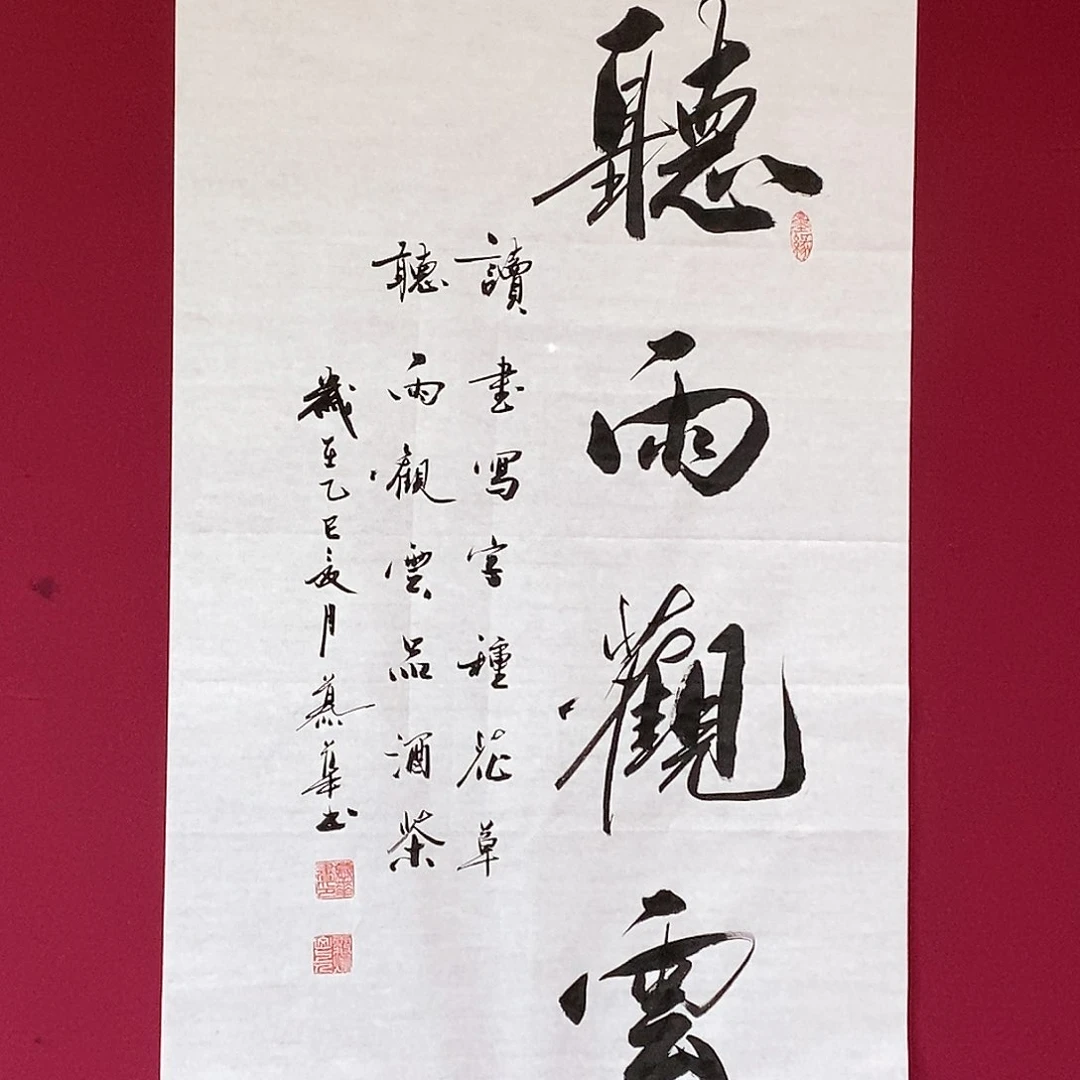 聽雨觀雲
讀書寫字種花草
聽雨觀雲品酒茶
歲至乙巳夏月慕華书